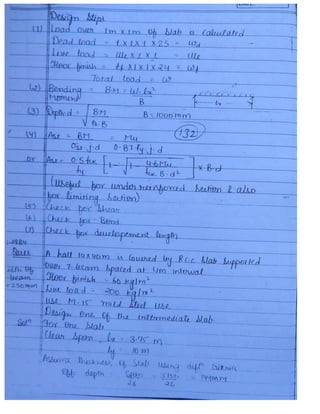 Design Steps
(1) Load over 1m x 1m of slab is calculated
Dead load = t x 1 x 1 x 25 = wd
Live load = wL x 1 x 1 = wL
Floor finish = tf x 1 x 1 x 24 = wf
Total load = w
(2) Bending Moment = BM = w.lx²/8
(3) Depth d = √(BM/Q.B) B = 1000 mm
(132)
(4) Ast = BM/σst.j.d = Mu/0.87 fy j.d
or Ast = 0.5 fck/fy [1 - √(1 - 4.6Mu/fck.B.d²)] x B.d
(Useful for under reinforced section & also
for limiting section)
(5) Check for Shear
(6) Check for Bond
(7) Check for developement length
Ques A hall 10x40m is covered by R.C.C slab supported
over 7 beam spaced at 4m interval
Floor finish = 60 kg/m²
Live load = 200 kg/m²
Use M-15 mild steel use
Design one of the intermediate slab
= 250mm
Solⁿ For one slab
Clear span, lx = 3.75 m
ly = 10 m
Assume thickness of slab using defⁿ criteria
Eff depth = Span/26